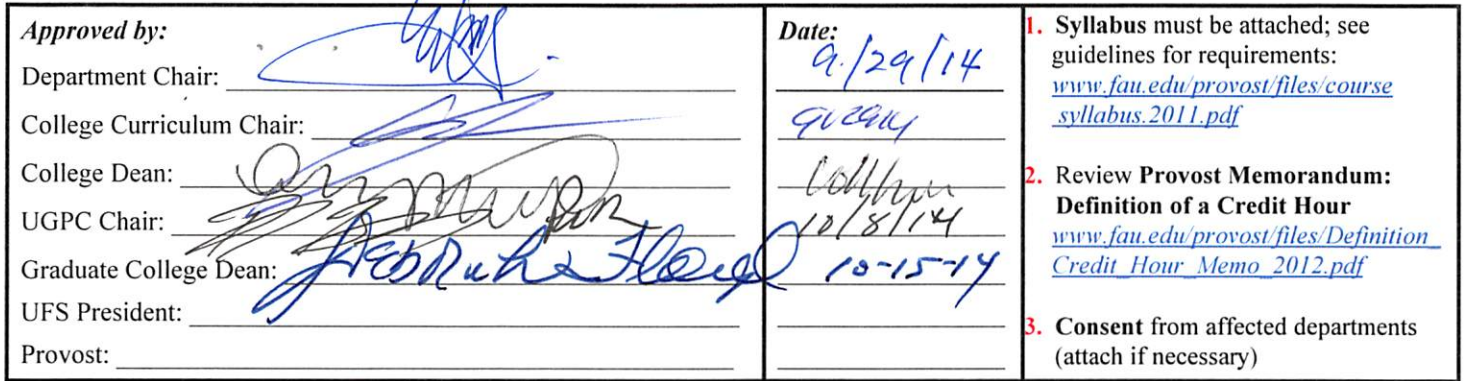 Approved by:
Department Chair:
College Curriculum Chair:
College Dean:
UGPC Chair:
Graduate College Dean:
UFS President:
Provost:
Date:
9/29/14
10/8/14
10-15-14
1. Syllabus must be attached; see
guidelines for requirements:
www.fau.edu/provost/files/course
syllabus.2011.pdf
2. Review Provost Memorandum:
Definition of a Credit Hour
www.fau.edu/provost/files/Definition_
Credit_Hour_Memo_2012.pdf
3. Consent from affected departments
(attach if necessary)